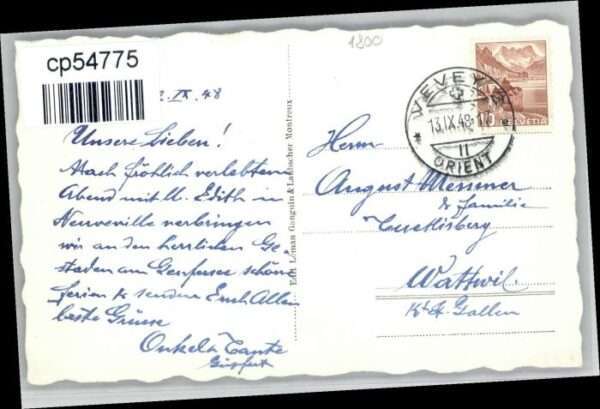 cp54775
1800
2. IX. 48
Unsere Lieben!
Nach fröhlich verlebtem
Abend mit U. Edith in
Neuveville verbringen
wir an den herrlichen Ge
staden am Genfersee schöne
Ferien & senden Euch Allen
beste Grüsse
Onkel & Tante
Edit. Loman Gonguin & Laubscher Montreux
VEVEY
13.IX.48
II
ORIENT
HELVETIA
Herrn
August Messmer
& Familie
Wattwil
Kt. St. Gallen